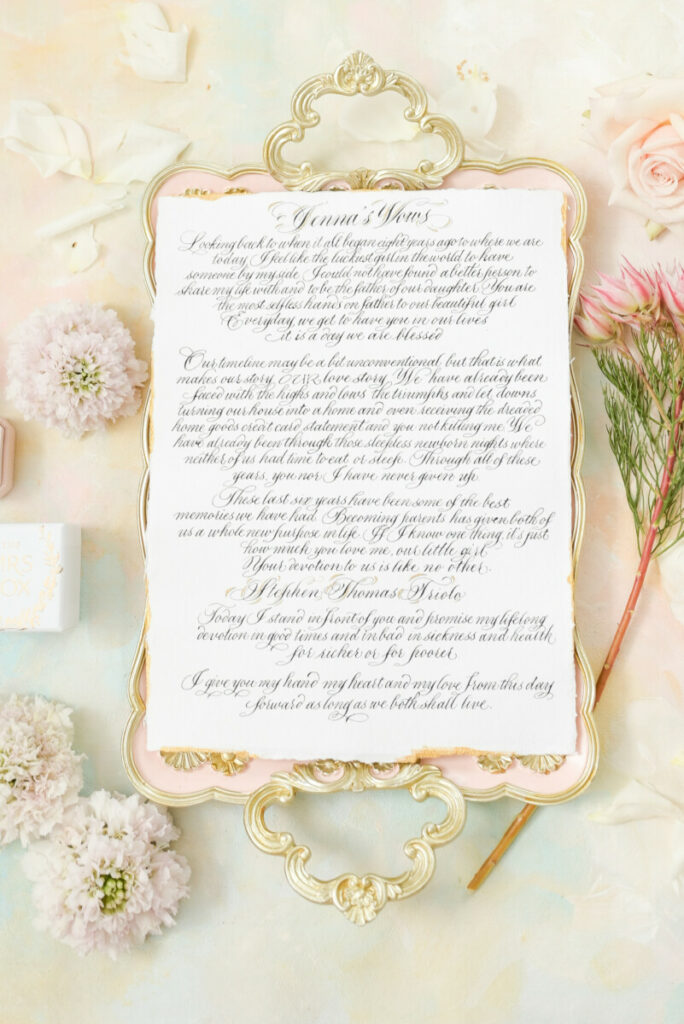 Jenna's Vows
Looking back to when it all began eight years ago to where we are
today, I feel like the luckiest girl in the world to have
someone by my side. I could not have found a better person to
share my life with and to be the father of our daughter. You are
the most selfless hands on father to our beautiful girl.
Everyday, we get to have you in our lives
it is a day we are blessed
Our timeline may be a bit unconventional, but that is what
makes our story, OUR love story. We have already been
faced with the highs and lows, the triumphs and let downs,
turning our house into a home and even receiving the dreaded
home goods credit card statement and you not killing me. We
have already been through those sleepless newborn nights where
neither of us had time to eat or sleep. Through all of these
years, you nor I have never given up.
These last six years have been some of the best
memories we have had. Becoming parents has given both of
us a whole new purpose in life. If I know one thing, it's just
how much you love me, our little girl.
Your devotion to us is like no other.
Stephen Thomas Triolo
Today, I stand in front of you and promise my lifelong
devotion in good times and in bad in sickness and health
for richer or for poorer.
I give you my hand, my heart and my love from this day
forward as long as we both shall live.
BOX